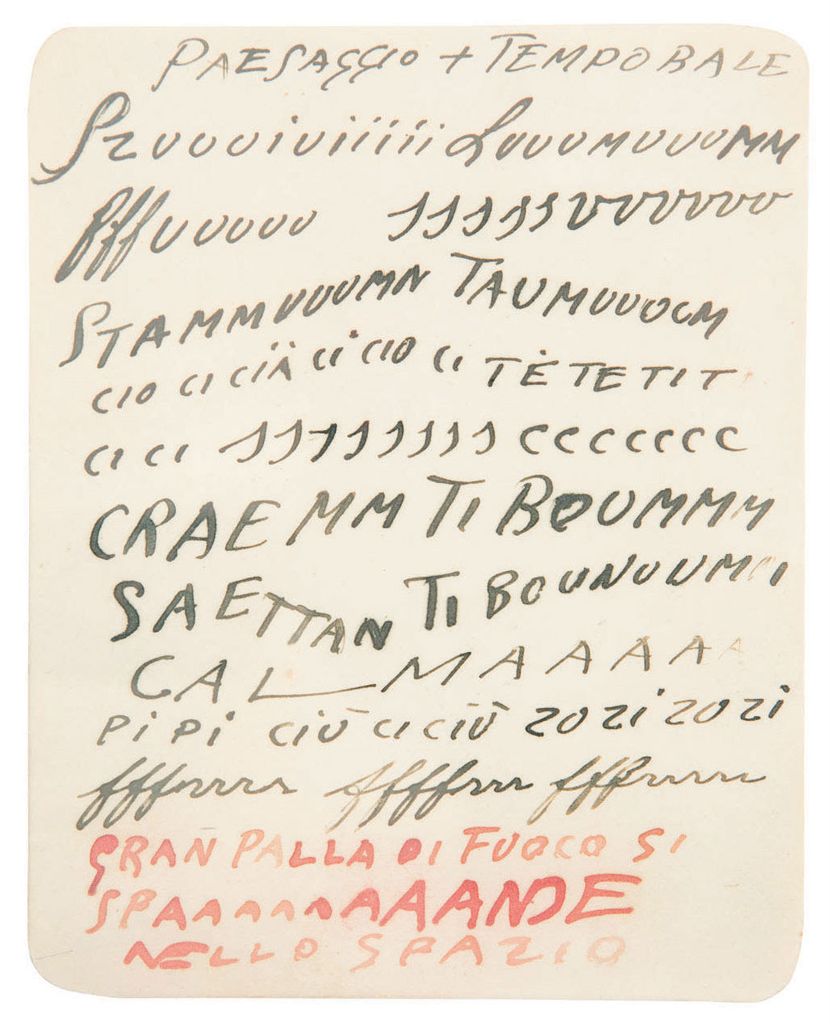 PAESAGGIO + TEMPORALE
Szvvoiviiiiii LvvvMvvvoMM
fffvvvvv JJJJJJvvvvvvv
STAMMUUUMN TAUMUUUOCM
CIO CI CIÄ CI CIO CI TÈTETIT
CI CI JJJJJJJJJ CCCCCCC
CRAEMM TI BOUMMM
SAETTAN TI BOUNOUM
CALMAAAAA
PiPi CIÙ CICIÙ zozizozi
fffrrrr fffffrrr fffrrrrr
GRAN PALLA DI FUOCO SI
SPAAAAAAAANDE
NELLO SPAZIO